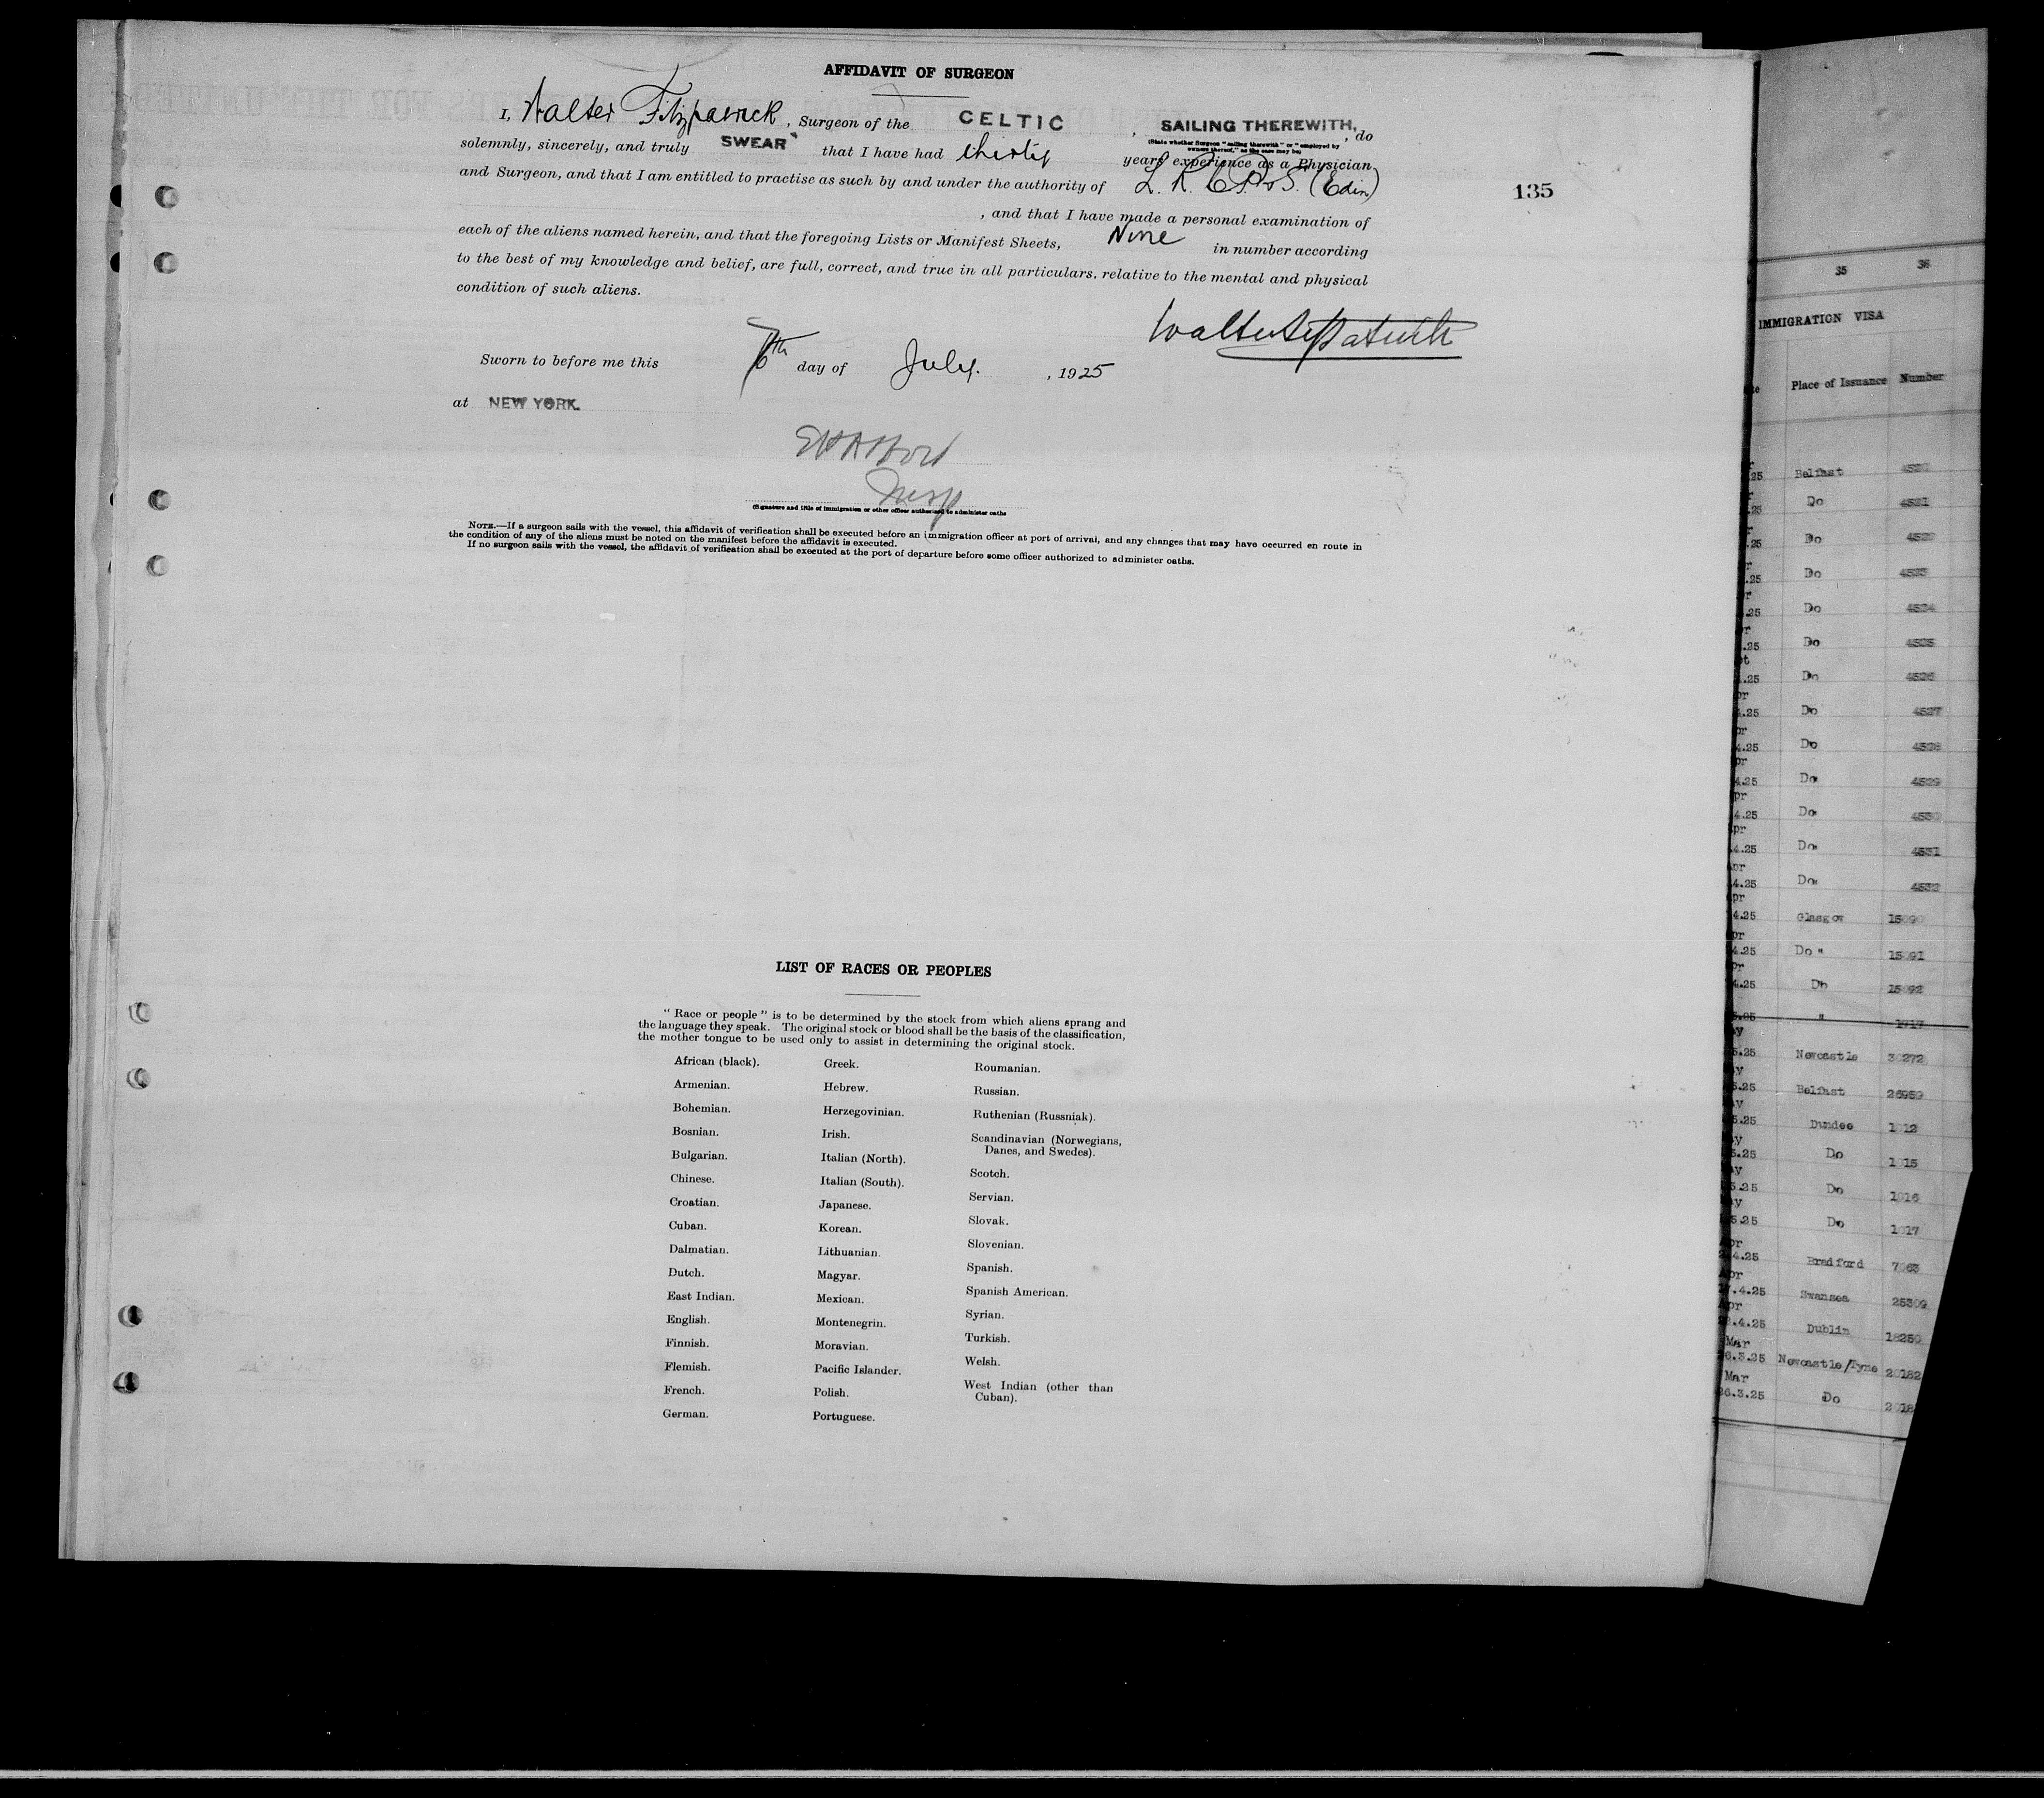 AFFIDAVIT OF SURGEON
I, Walter Fitzpatrick, Surgeon of the CELTIC, SAILING THEREWITH, do
(State whether Surgeon "sailing therewith" or "employed by
owners thereof," as the case may be)
solemnly, sincerely, and truly SWEAR that I have had thirty years experience as a Physician
and Surgeon, and that I am entitled to practise as such by and under the authority of L. R. C. P. & S. (Edin)
135
, and that I have made a personal examination of
each of the aliens named herein, and that the foregoing Lists or Manifest Sheets, Nine in number according
to the best of my knowledge and belief, are full, correct, and true in all particulars, relative to the mental and physical
condition of such aliens.
Walter Fitzpatrick
Sworn to before me this 6th day of July. , 1925
at NEW YORK.
Insp
(Signature and title of immigration or other officer authorized to administer oaths
NOTE.—If a surgeon sails with the vessel, this affidavit of verification shall be executed before an immigration officer at port of arrival, and any changes that may have occurred en route in
the condition of any of the aliens must be noted on the manifest before the affidavit is executed.
If no surgeon sails with the vessel, the affidavit of verification shall be executed at the port of departure before some officer authorized to administer oaths.
LIST OF RACES OR PEOPLES
" Race or people " is to be determined by the stock from which aliens sprang and
the language they speak. The original stock or blood shall be the basis of the classification,
the mother tongue to be used only to assist in determining the original stock.
African (black).
Armenian.
Bohemian.
Bosnian.
Bulgarian.
Chinese.
Croatian.
Cuban.
Dalmatian.
Dutch.
East Indian.
English.
Finnish.
Flemish.
French.
German.
Greek.
Hebrew.
Herzegovinian.
Irish.
Italian (North).
Italian (South).
Japanese.
Korean.
Lithuanian.
Magyar.
Mexican.
Montenegrin.
Moravian.
Pacific Islander.
Polish.
Portuguese.
Roumanian.
Russian.
Ruthenian (Russniak).
Scandinavian (Norwegians,
Danes, and Swedes).
Scotch.
Servian.
Slovak.
Slovenian.
Spanish.
Spanish American.
Syrian.
Turkish.
Welsh.
West Indian (other than
Cuban).
35 36
IMMIGRATION VISA
Place of Issuance Number
Belfast
Do 4521
Do 4522
Do 4523
Do 4524
Do 4525
Do 4526
Do 4527
Do 4528
Do 4529
Do 4530
Do 4531
Do 4532
Glasgow 15090
Do " 15091
Do 15092
"
Newcastle 30272
Belfast 26959
Dundee 1012
Do 1015
Do 1016
Do 1017
Bradford 7063
Swansea 25309
Dublin 18250
Mar
26.3.25 Newcastle/Tyne 20182
Mar
26.3.25 Do 2018